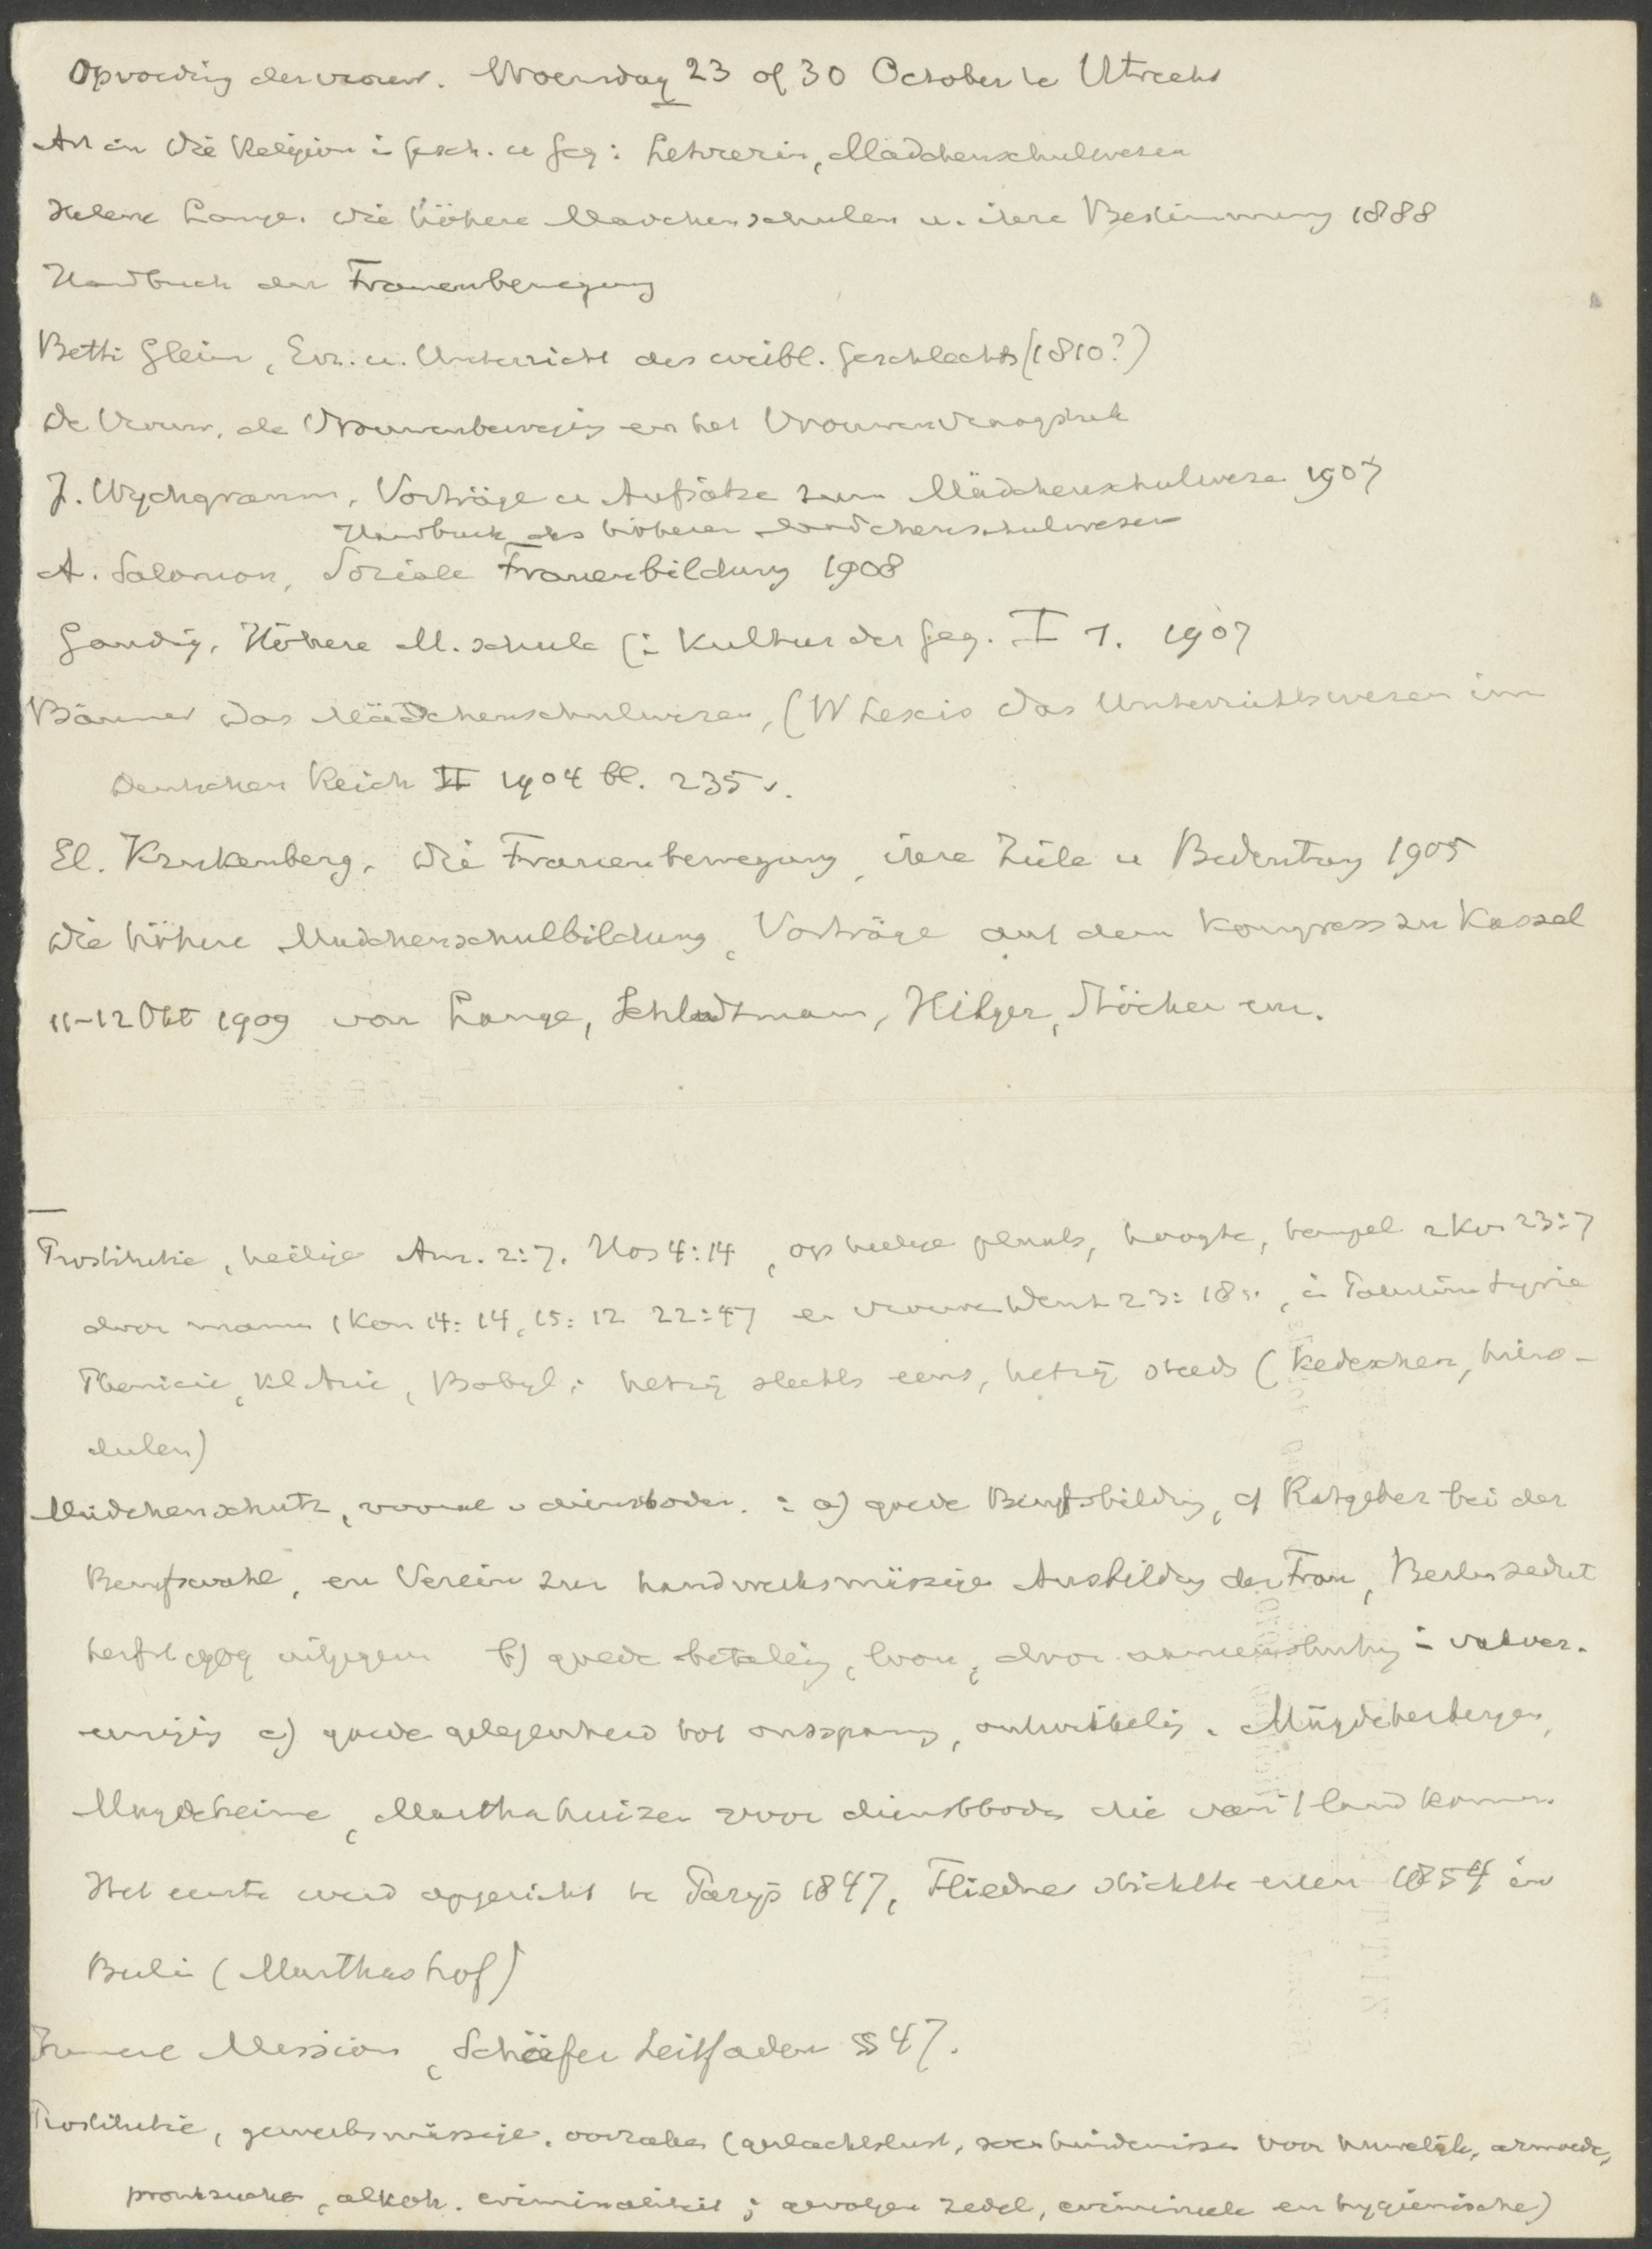 Opvoeding der vrouw. Woensdag 23 of 30 October te Utrecht
Art in Die Religion i Gesch. u Geg: Lehrerin, Mädchenschulwesen
Helene Lange. Die höhere Madchenschulen u. ihre Bestimmung 1888
Handbuch der Frauenbewegung
Betti Gleim, Erz. u. Unterricht des weibl. Geschlechts (1810?)
De Vrouw, de Vrouwenbeweging en het Vrouwenvraagstuk
J. Wychgramm, Vorträge u Aufsätze zum Mädchenschulwesen 1907
Handbuch des höheren Mädchenschulwesen
A. Salomon, Soziale Frauenbildung 1908
Gaudig, Höhere M. schule (i Kultur der Geg. I 1. 1907
Bäumer Das Mädchenschulwesen, (W Lexis Das Unterrichtswesen im
Deutschen Reich II 1904 bl. 235 v.
El. Krukenberg, Die Frauenbewegung, ihre Ziele u Bedeutung 1905
Die höhere Mädchenschulbildung, Vorträge auf dem Kongress zu Kassel
11-12 Okt 1909 von Lange, Schlodtmann, Hilger, Stöcker enz.
Prostitutie, heilige Am. 2:7. Hos 4:14, op heilige plaats, hoogte, tempel 2 Kon 23:7
door mannen 1 Kon 14:14, 15:12 22:47 en vrouwen Deut 23:18v., in Palestina Syrie
Phenicie, Kl Azie, Babyl; hetzij slechts eens, hetzij steeds (Kedeschen, hiero-
dulen)
Mädchenschutz, vooral v dienstboden. : a) goede Berufsbildung, cf Ratgeber bei der
Berufswahl, en Verein zur handwerksmässigen Ausbildung der Frau, Berlin sedert
herfst 1909 b) goede betaling, loon, door i vakver-
eeniging c) goede gelegenheid tot ontspanning, ontwikkeling. Mägdeherbergen,
Mägdeheime, Marthahuizen voor dienstboden die van 't land komen.
Het eerste werd opgericht te Parijs 1847, Fliedner stichtte eene 1854 in
Berlin (Marthashof)
Innere Mission, Schäfer Leitfaden § 47.
Prostitutie, gewerbsmässige. oorzaken (geslachtslust, voor huwelijk, armoede,
pronkzucht, alkoh. criminaliteit; gevolgen zedel, crimineele en hygienische)